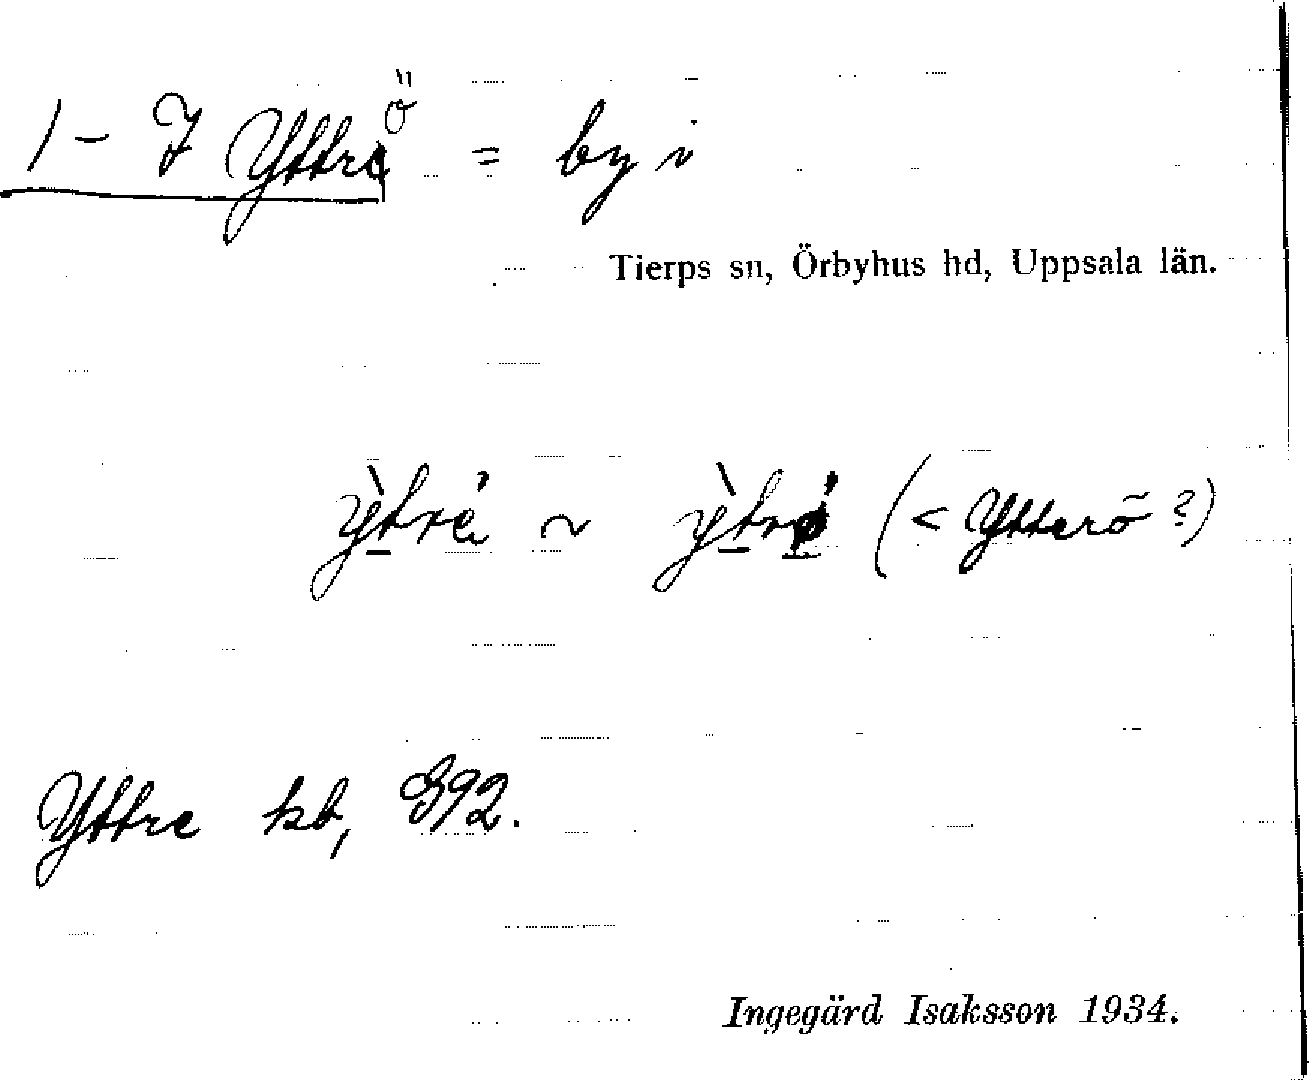 1 – 7 Yttrö = by i
Tierps sn, Örbyhus hd, Uppsala län.
ỳtré ~ ỳtré (< Ytterö ?)
Yttre kb, G92.
Ingegärd Isaksson 1934.